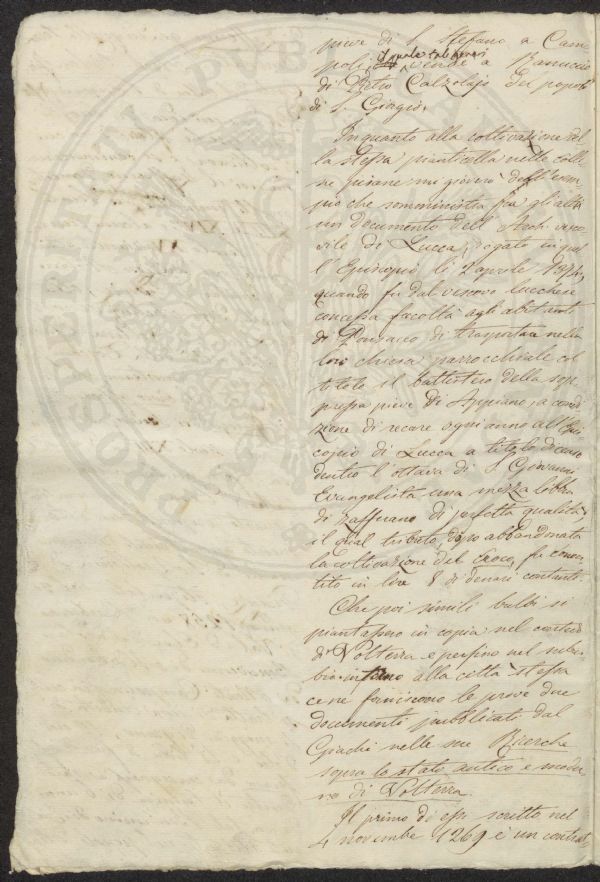 pieve di S. Stefano a Cam
poli, il quale tal generi vende a Banuccio
di Pietro Calzolajo del popolo
di S. Giorgio.
Inquanto alla coltivazione del
la stessa pianticella nelle colli
ne pisane mi gioverò dell'esem
pio che somministra fra gli altri
un documento dell'Arch. vesco
vile di Lucca, rogato in quel
l'Episcopio li 2 aprile
quando fu dal vescovo lucchese
concessa facoltà agli abitanti
di Ponsacco di trasportare nella
loro chiesa parrocchiale col
titolo il battistero della sop
pressa pieve di Appiano, a condi
zione di recare ogni anno all'Epi
scopio di Lucca a titolo di censo
dentro l'ottava di S. Giovanni
Evangelista una mezza libbra
di zafferano di perfetta qualità
il qual tributo, dopo abbandonata
la coltivazione del Croco, fu conver
tito in lire 8 di denari contanti.
Che poi simili bulbi si
piantassero in copia nel contado
di Volterra e perfino nel subur
bio intorno alla città stessa
ce ne forniscono le prove due
documenti pubblicati dal
Giachi nelle sue Ricerche
sopra lo stato antico e moder
no di Volterra.
Il primo di essi scritto nel
4 novembre 1269 è un contrat
PROSPERITATI PUB